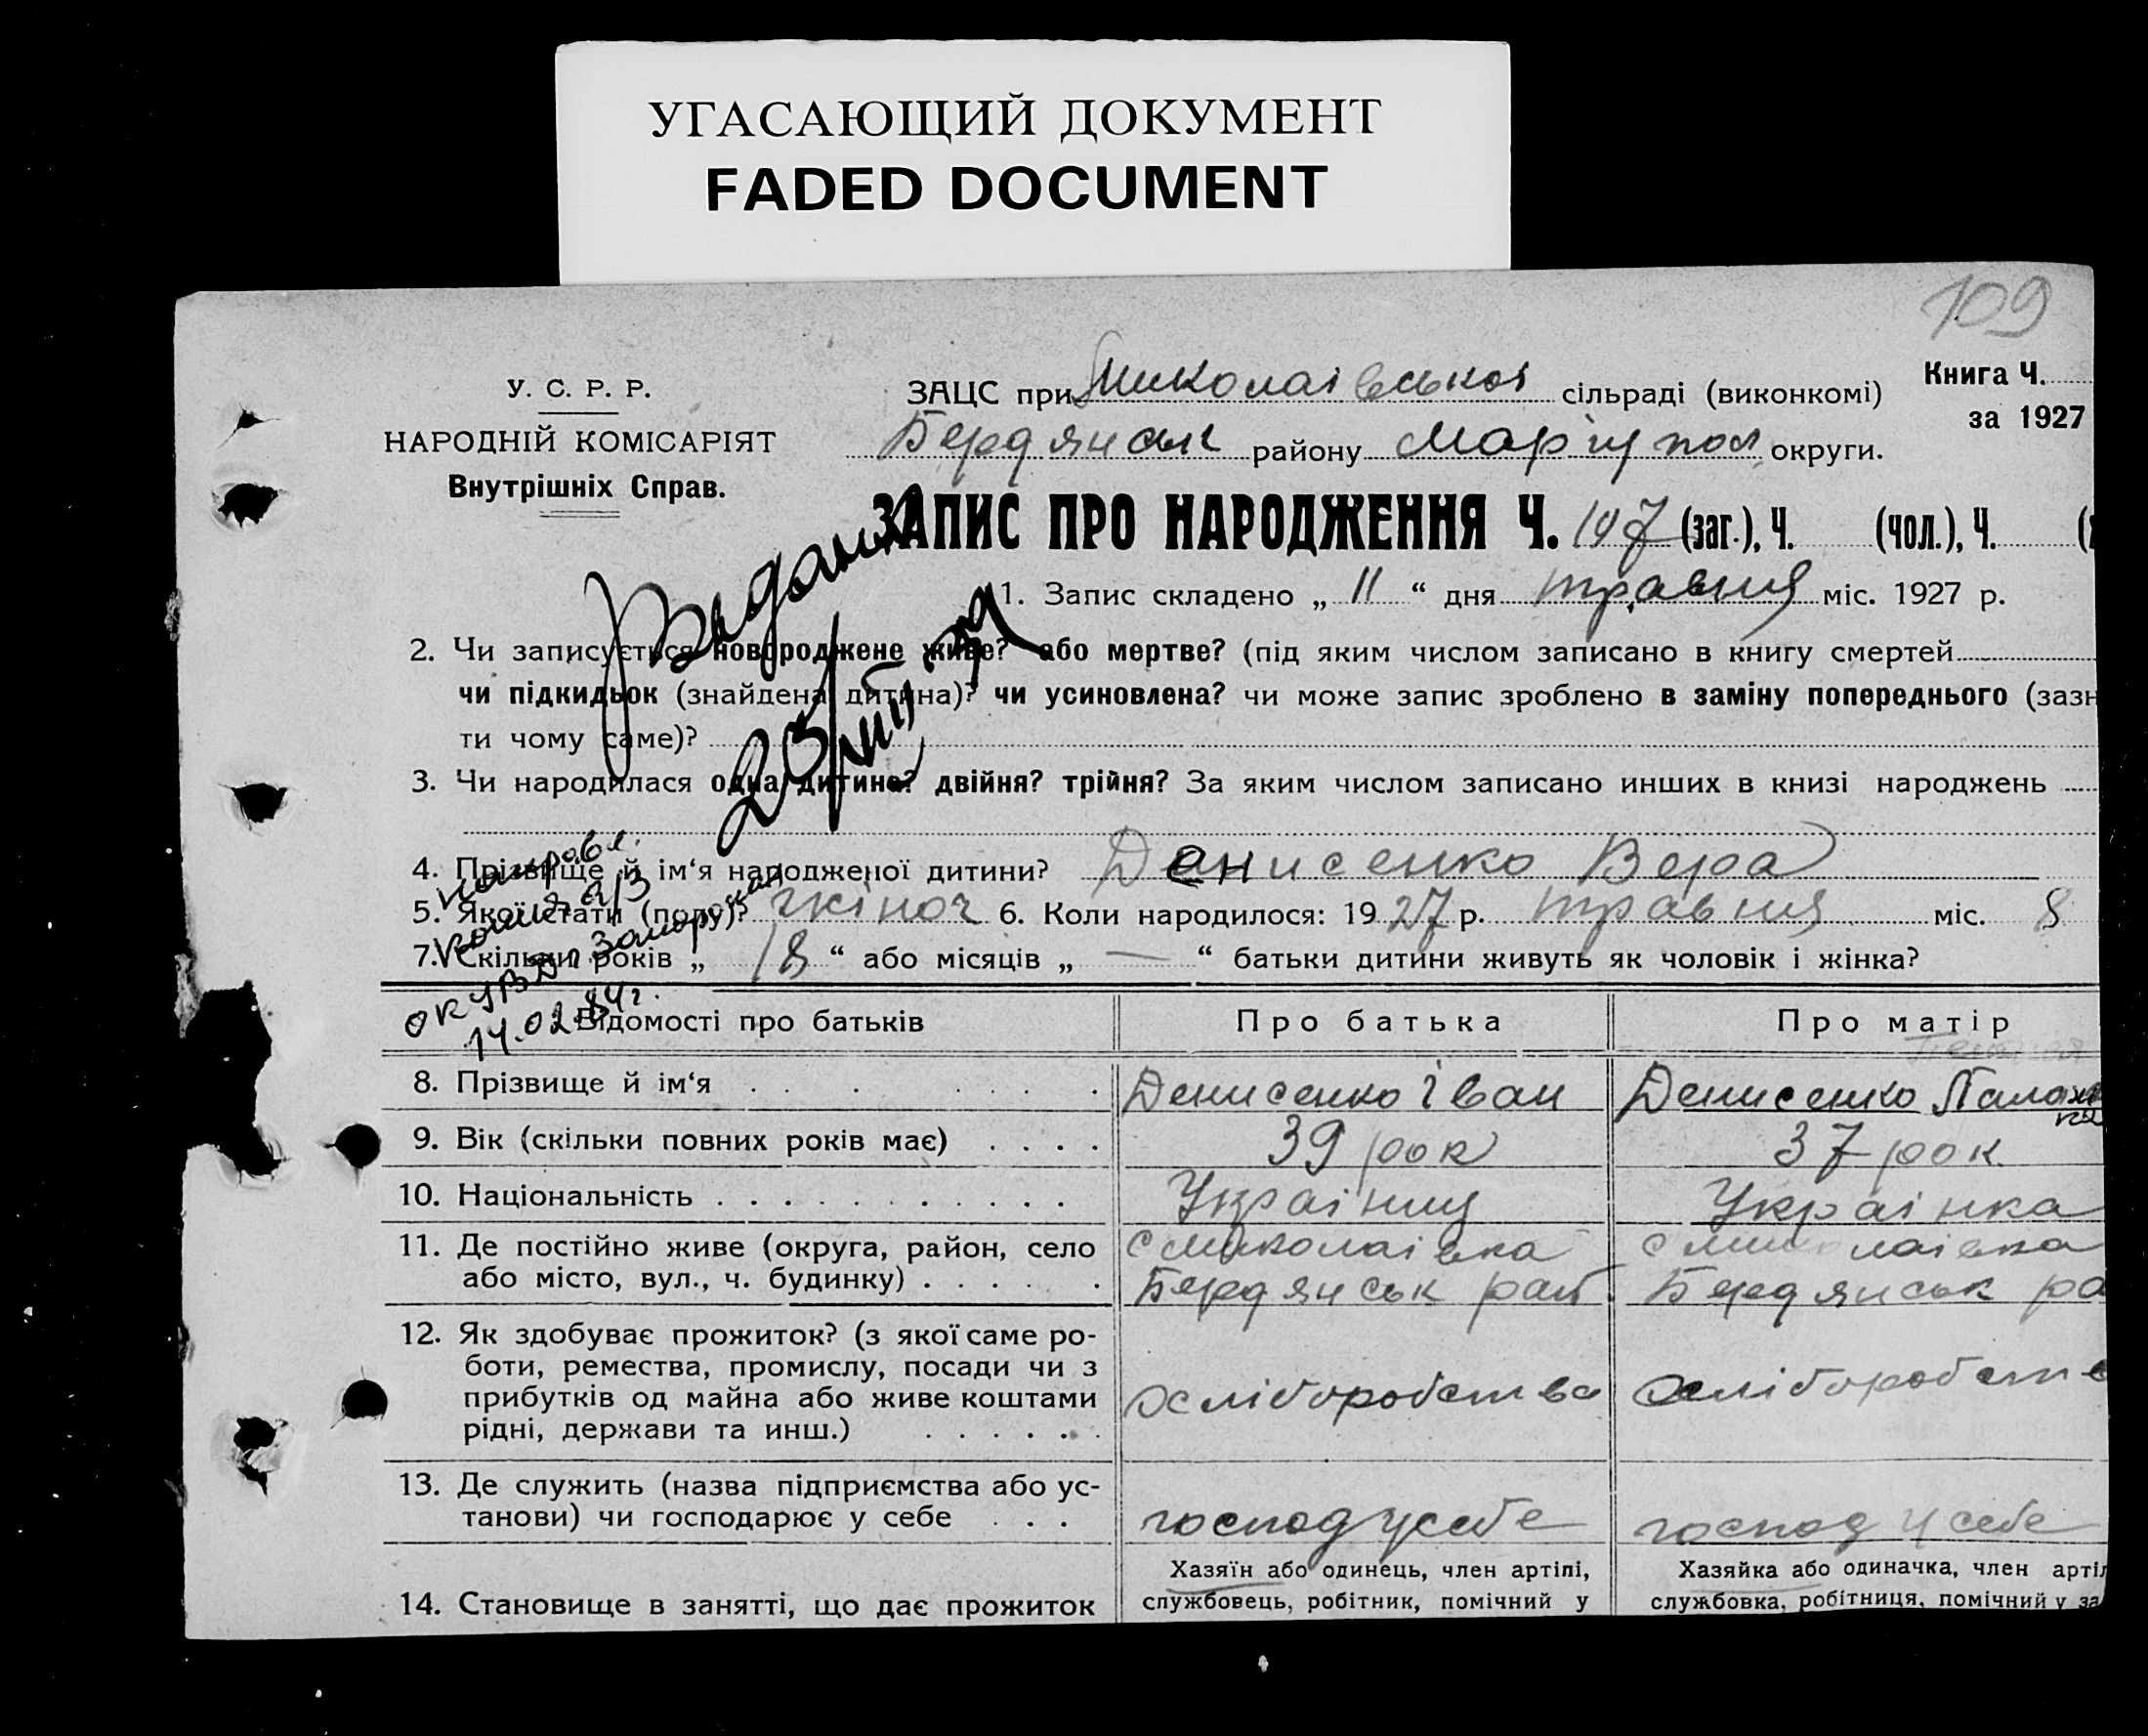 УГАСАЮЩИЙ ДОКУМЕНТ
FADED DOCUMENT
109
У. С. Р. Р.
НАРОДНІЙ КОМІСАРІЯТ
Внутрішніх Справ.
ЗАЦС при Миколаівськоі сільраді (виконкомі)
Бердянськ району Маріупол округи.
Книга Ч.
за 1927
ЗАПИС ПРО НАРОДЖЕННЯ Ч. 197 (заг.), Ч. (чол.), Ч.
1. Запис складено „ 11 “ дня травня міс. 1927 р.
2. Чи записується новороджене живе? або мертве? (під яким числом записано в книгу смертей
чи підкидьок (знайдена дитина)? чи усиновлена? чи може запис зроблено в заміну попереднього (зазн
ти чому саме)?
3. Чи народилася одна дитина? двійня? трійня? За яким числом записано инших в книзі народжень
4. Прізвище й ім‘я народженої дитини? Денисенко Вера
5. Якої стати (полу)? жіноч 6. Коли народилося: 1927 р. травня міс. 8
7. Скільки років „ 18 “ або місяців „ — “ батьки дитини живуть як чоловік і жінка?
направл.
копия а/з
ОКУВД г Запорожан
14.02.84г.
Відомості про батьків
Про батька
Про матір
8. Прізвище й ім‘я
Денисенко Іван
Денисенко
9. Вік (скільки повних років має)
39 рок
37 рок
10. Національність
Украінец
Украінка
11. Де постійно живе (округа, район, село
або місто, вул., ч. будинку)
с Миколаівка
Бердянськ рай.
с Миколаівка
Бердянськ ра
12. Як здобуває прожиток? (з якої саме ро-
боти, ремества, промислу, посади чи з
прибутків од майна або живе коштами
рідні, держави та инш.)
хліборобство
хліборобств
13. Де служить (назва підприємства або ус-
танови) чи господарює у себе
господ у себе
господ у себе
14. Становище в занятті, що дає прожиток
Хазяїн або одинець, член артілі,
службовець, робітник, помічний у
Хазяйка або одиначка, член артіл
службовка, робітниця, помічний у за